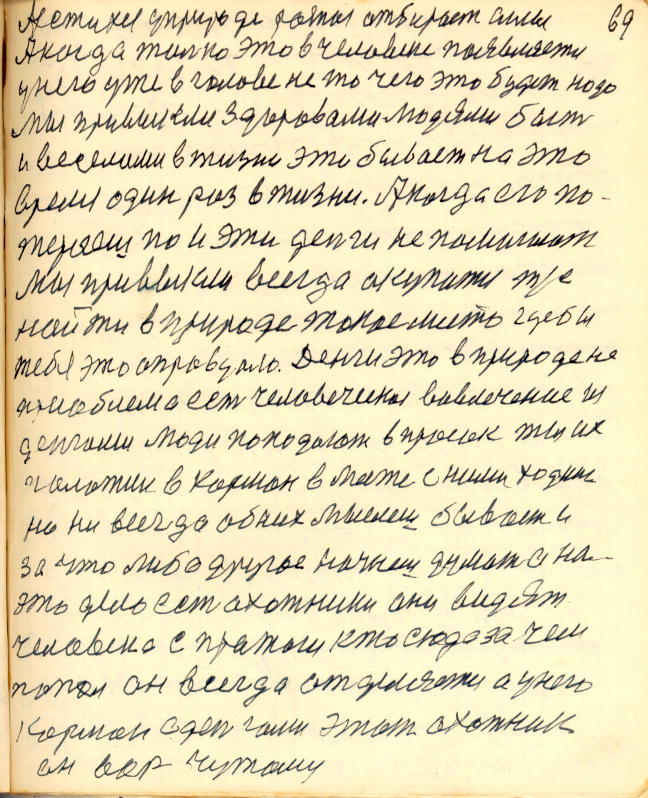 69
природе отбирает силы
А когда только это в человеке появляется
у него уже в голове не то чего это будет надо
мы привыкли здоровами людями быт
и веселыми в жизни это бывает на это
время один раз в жизни. А когда его по-
теряеш то и эти денги не помогают
Мы привыкли всегда окупат где
найти в природе такое место где бы
тебя это оправдало. Денги это в природе не
проблема ест человеческая вовлечение
денгами люди попадают в просак ты их
в карман в месте с ними ходиш
но ни всегда об них мыслеш бывает и
за что либо другое начнеш думат а на
это дело ест охотники они видят
человека с кто сюда зачем
попал он всегда а у него
карман с денгами этот охотник
он вор